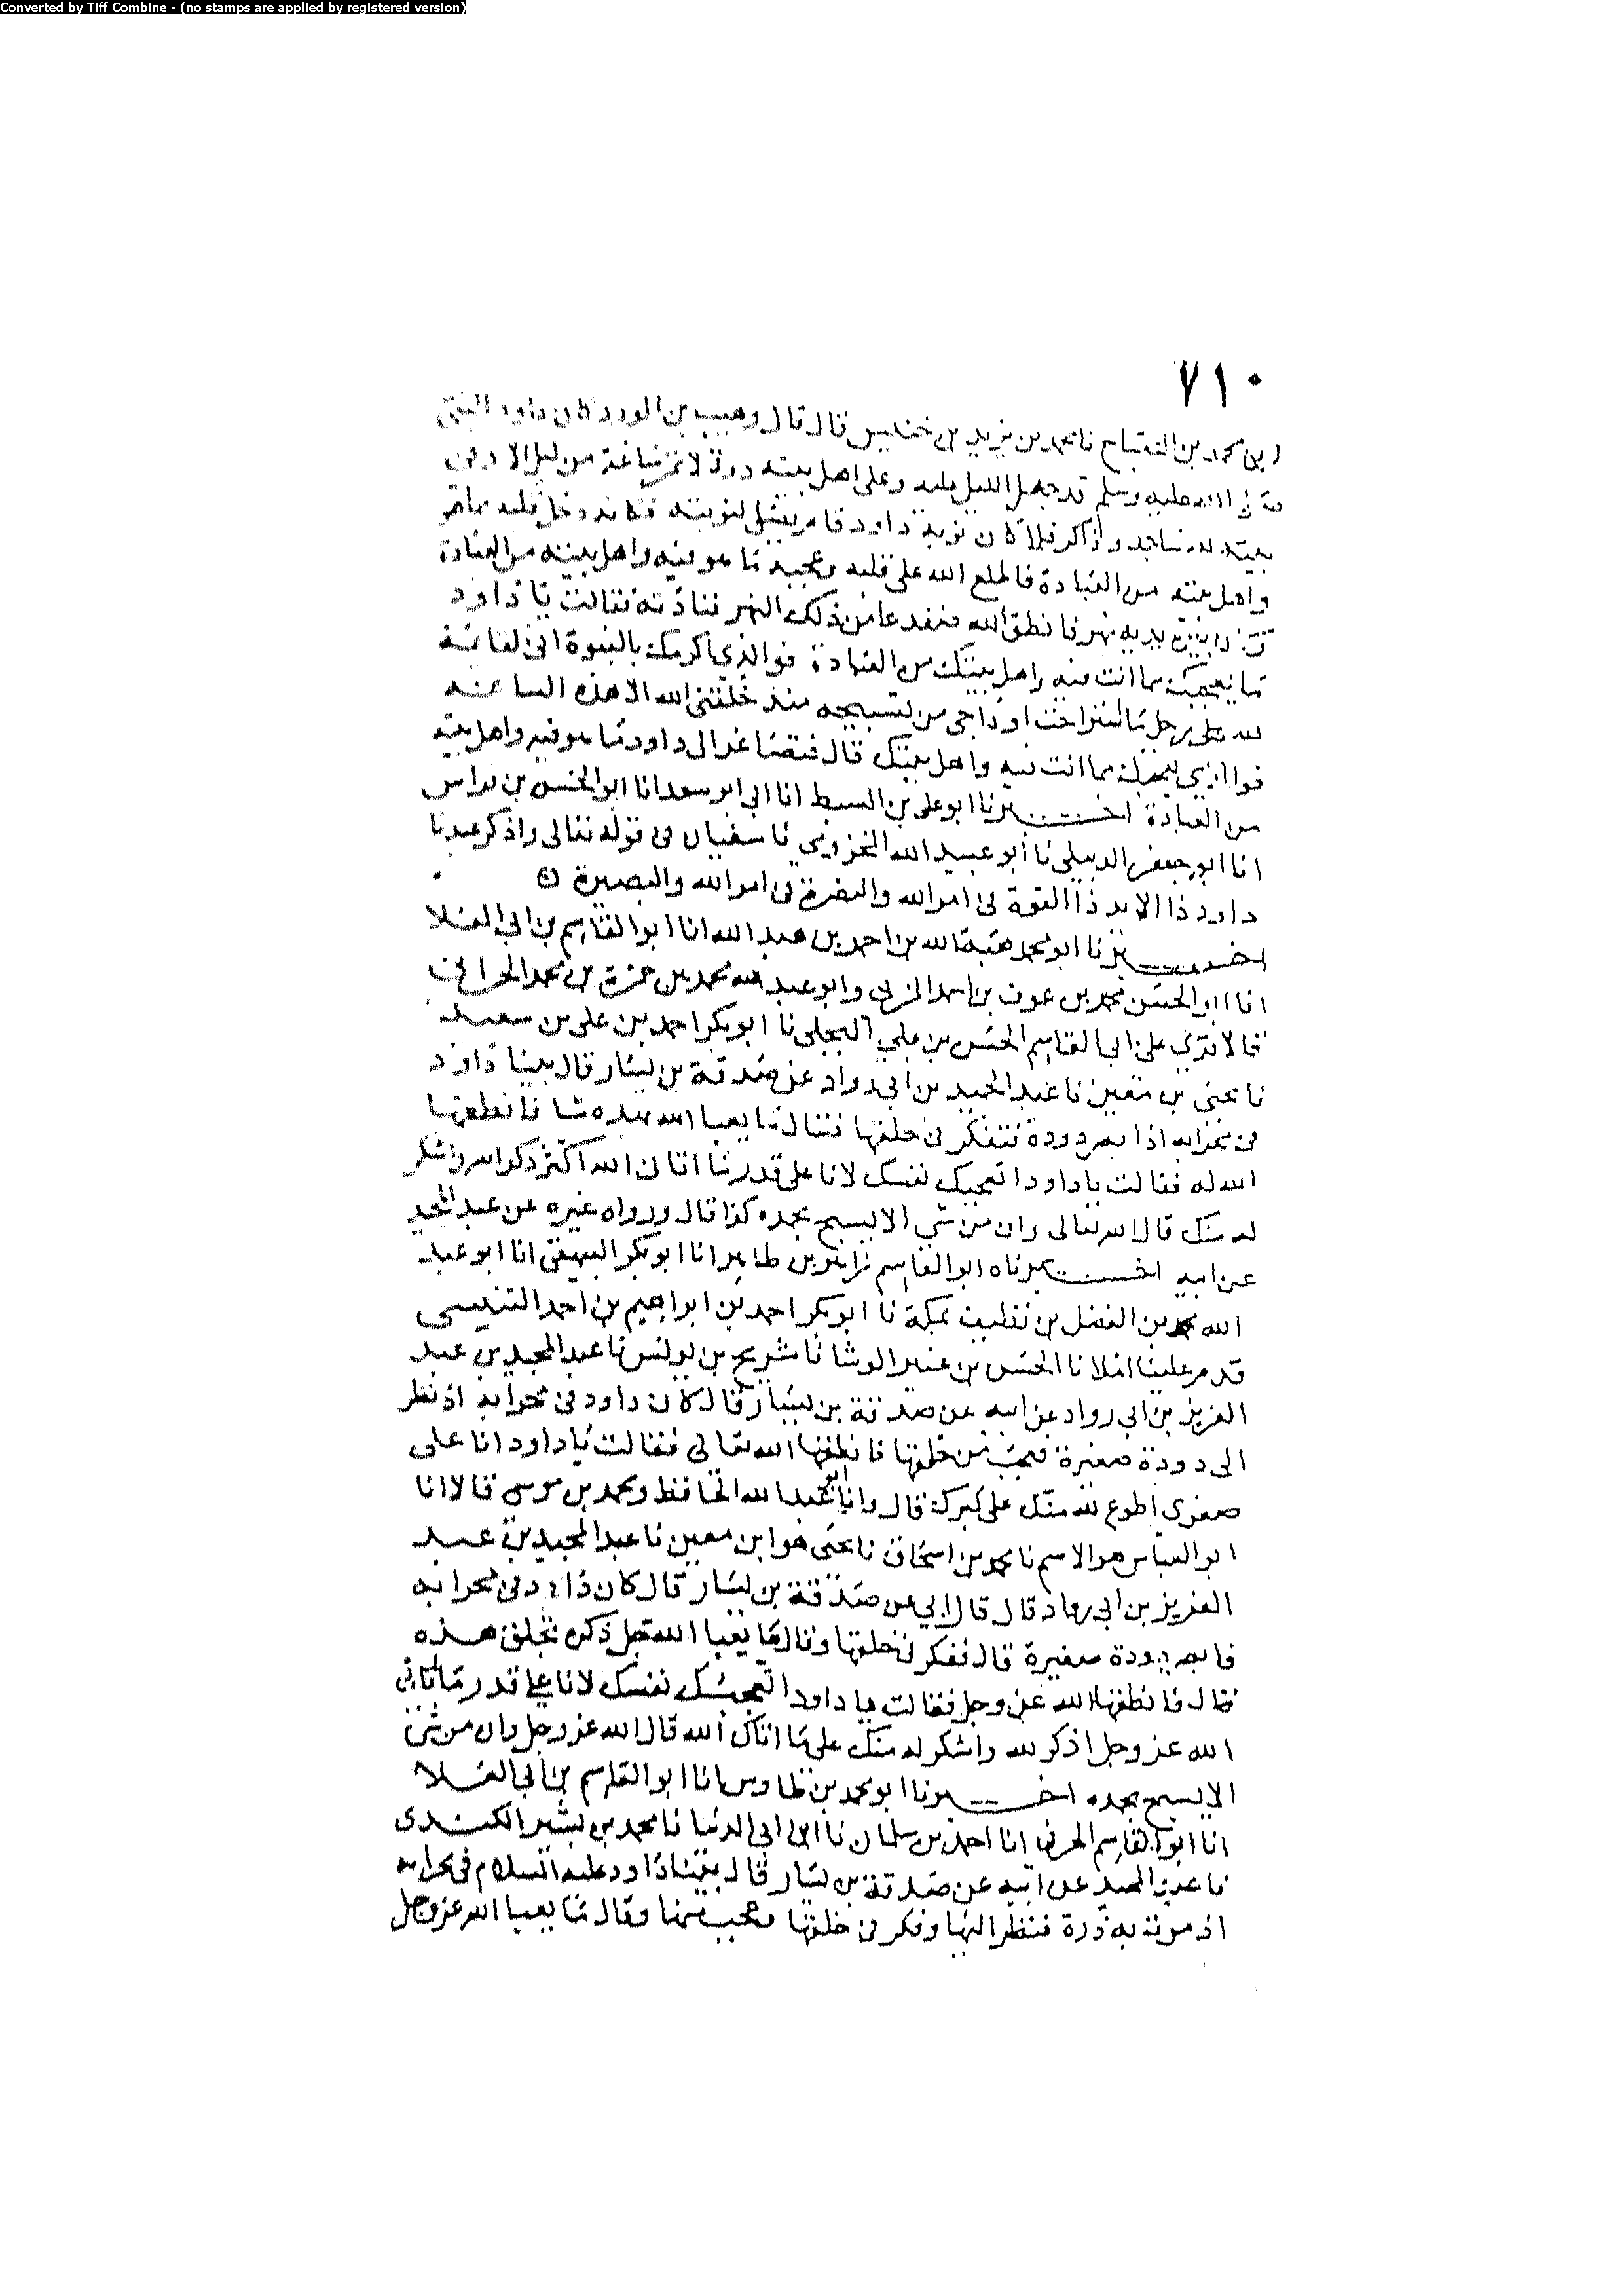 Converted by Tiff Combine - (no stamps are applied by registered version)
٧١٠
ابن محمد بن الصباح نا محمد بن يزيد بن خنيس قال قال وهيب بن الورد كان داود النبي
صلى الله عليه وسلم قد جعل الليل عليه وعلى اهل بيته دولة لا تمر ساعة من ليل الا وفي
بيته لله ساجد وذاكر فلما كان نوبة داود قام يصلي لنوبته فكانه دخل قلبه مما هو
واهل بيته من العبادة فاطلع الله على قلبه وعجبه مما هو فيه واهل بيته من العبادة
بين يديه نهر فانطق الله ضفدعا من ذلك النهر فنادته فقالت يا داود
ما يعجبك مما انت فيه واهل بيتك من العبادة فوالذي اكرمك بالنبوة اني لقائمة
لله على رجل ما استراحت اوداجي من تسبيحه منذ خلقني الله الا هذه الساعة
فما الذي يعجبك مما انت فيه واهل بيتك قال فتصاغر الى داود ما هو فيه واهل بيته
من العبادة اخبرنا ابو علي بن السبط انا ابي ابو سعد انا ابو الحسن بن فراس
انا ابو جعفر الديبلي نا ابو عبيد الله المخزومي نا سفيان في قوله تعالى واذكر عبدنا
داود ذا الايد ذا القوة في امر الله والبصرة في امر الله والبصيرة
اخبرنا ابو محمد هبة الله بن احمد بن عبد الله انا ابو القاسم بن ابي العلا
انا ابو الحسن محمد بن عوف بن احمد المزني وابو عبد الله محمد بن حمزة بن محمد الحراني
قالا قرئ على ابي القاسم الحسن بن علي البجلي نا ابو بكر احمد بن علي بن سعيد
نا يحيى بن معين نا عبد المجيد بن ابي رواد عن صدقة بن يسار قال بينا داود
في محرابه اذا بصر دودة فتفكر في خلقها فقال ما يعبا الله بهذه شا فانطقها
الله له فقالت يا داود اتعجبك نفسك لانا على قدر ما اتان الله اكثر ذكرا لله واشكر
له منك قال الله تعالى وان من شي الا يسبح بحمده كذا قال ورواه غيره عن عبد المجيد
عن ابيه اخبرناه ابو القاسم زاهر بن طاهر انا ابو بكر البيهقي انا ابو عبد
الله محمد بن الفضل بن نظيف بمكة نا ابو بكر احمد بن ابراهيم بن احمد التنيسي
قدم علينا املانا الحسن بن عنبر الوشا نا شريح بن يونس نا عبد المجيد بن عبد
العزيز بن ابي رواد عن ابيه عن صدقة بن يسار قال كان داود في محرابه اذ نظر
الى دودة صغيرة فعجب من خلقها فانطقها الله تعالى فقالت يا داود انا على
صغري اطوع لله منك على كبرك قال وانا ابو عبد الله الحافظ ومحمد بن موسى قالا انا
ابو العباس هو الاصم نا محمد بن اسحاق نا يحيى هو ابن معين نا عبد المجيد بن عبد
العزيز بن ابي رواد قال قال ابي عن صدقة بن يسار قال كان داود في محرابه
فابصر دودة صغيرة قال ففكر في خلقها وقال ما يعبا الله جل ذكره بخلق هذه
قال فانطقها الله عز وجل فقالت يا داود اتعجبك نفسك لانا على قدر ما اتاني
الله عز وجل اذكر لله واشكر له منك على ما اتاك الله قال الله عز وجل وان من شي
الا يسبح بحمده اخبرنا ابو محمد بن طاوس انا ابو القاسم بن ابي العلا
انا ابو القاسم الحرفي انا احمد بن سلمان نا ابن ابي الدنيا نا محمد بن بشير الكندي
نا عبد المجيد عن ابيه عن صدقة بن يسار قال بينا داود عليه السلام في محرابه
اذ مرت به ذرة فنظر اليها وفكر في خلقها وعجب منها وقال ما يعبا الله عز وجل